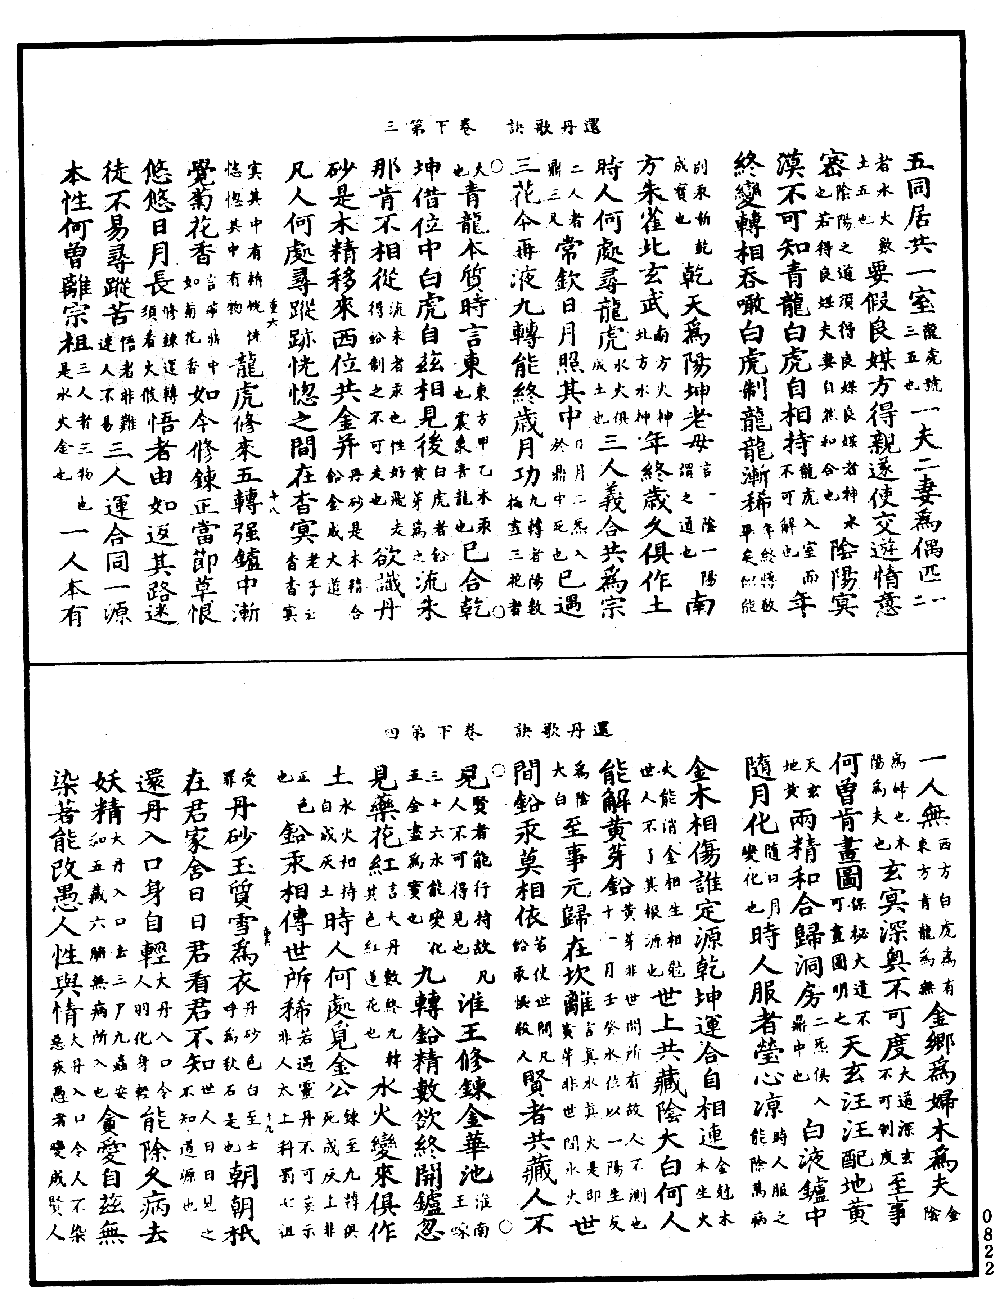 還丹歌訣　卷下第三
五同居共一室龍虎號三五也一夫二妻爲偶匹一二
者水火數土五也要假良媒方得親遂使交遊情意
密陰陽之道須得良媒良媒者神水也若得良媒夫妻自然和合也陰陽冥
漠不可知青龍白虎自相持龍虎入室而不可解也年
終變轉相吞噉白虎制龍龍漸稀年終將數畢矣
成寶也乾天爲陽坤老母言一陰一陽謂之道也南
方朱雀北玄武南方火神北方水神年終歲久俱作土
時人何處尋龍虎水火俱成土也三人義合共爲宗
二人者鼎三足常欽日月照其中日月二炁入於鼎中死也已遇
三花今再液九轉能終歲月功九轉者陽數
大也青龍本質時言東東方甲乙木汞也震象青龍也已合乾
坤借位中白虎自茲相見後白虎者鉛黃芽爲之流朱
那肯不相從流朱者汞也性好飛走得鉛制之不可走也欲識丹
砂是木精移來西位共金并丹砂是木精合鉛金成大道
凡人何處尋蹤跡恍惚之間在杳冥老子云杳杳冥
冥其中有精恍恍惚惚其中有物龍虎修來五轉强鑪中漸
覺菊花香言藥鼎中如菊花香如今修鍊正當節草恨
悠悠日月長修鍊運轉須看火候悟者由如返其路迷
徒不易尋蹤苦悟者非難達人不易三人運合同一源
本性何曾離宗祖三人者三物也是水火金也一人本有
還丹歌訣　卷下第四
一人無西方白虎爲有東方青龍爲無金鄉爲婦木爲夫金陰
爲婦也木陽爲夫也玄冥深奥不可度大道深玄不可制度至事
何曾肯畫圖保秘大道不可畫圖明之天玄汪汪配地黄
天玄地黄兩精和合歸洞房二炁俱入鼎中也白液鑪中
隨月化隨日月變化也時人服者瑩心凉時人服之能除萬病
金木相傷誰定源乾坤運合自相連金尅木木生火
火能消金相生相尅世人不了其根源也世上共藏陰大白何人
能解黄芽鉛黄芽非世間所有故人不測也十一月壬癸水位以一陽生反
爲陰大白至事元歸在坎離言真水真火是即黄芽非世間水火世
間鉛汞莫相依若使世間凡鉛汞損敗人賢者共藏人不
見賢者能行持故凡人不可得見也淮王修鍊金華池淮南王
三十六水能變化五金盡爲寶也九轉鉛精數欲終開鑪忽
見藥花紅言大丹數終九轉其色紅蓮花也水火變來俱作
土水火相持自成灰土時人何處覓金公鍊至九轉俱死成灰上非
正色也鉛汞相傳世所稀若遇靈丹不可妄示非人太上科罰七祖
受罪丹砂玉質雪爲衣丹砂色白至士呼爲秋石是也朝朝秖
在君家舍日日君看君不知世人日日見之不知道源也能除久病去
還丹入口身自輕大丹入口令人羽化身輕
妖精大丹入口去三尸九蟲安和五藏六腑無病所入也貪愛自兹無
染著能改愚人性與情大丹入口令人不染惡疾愚者變成賢人
0822